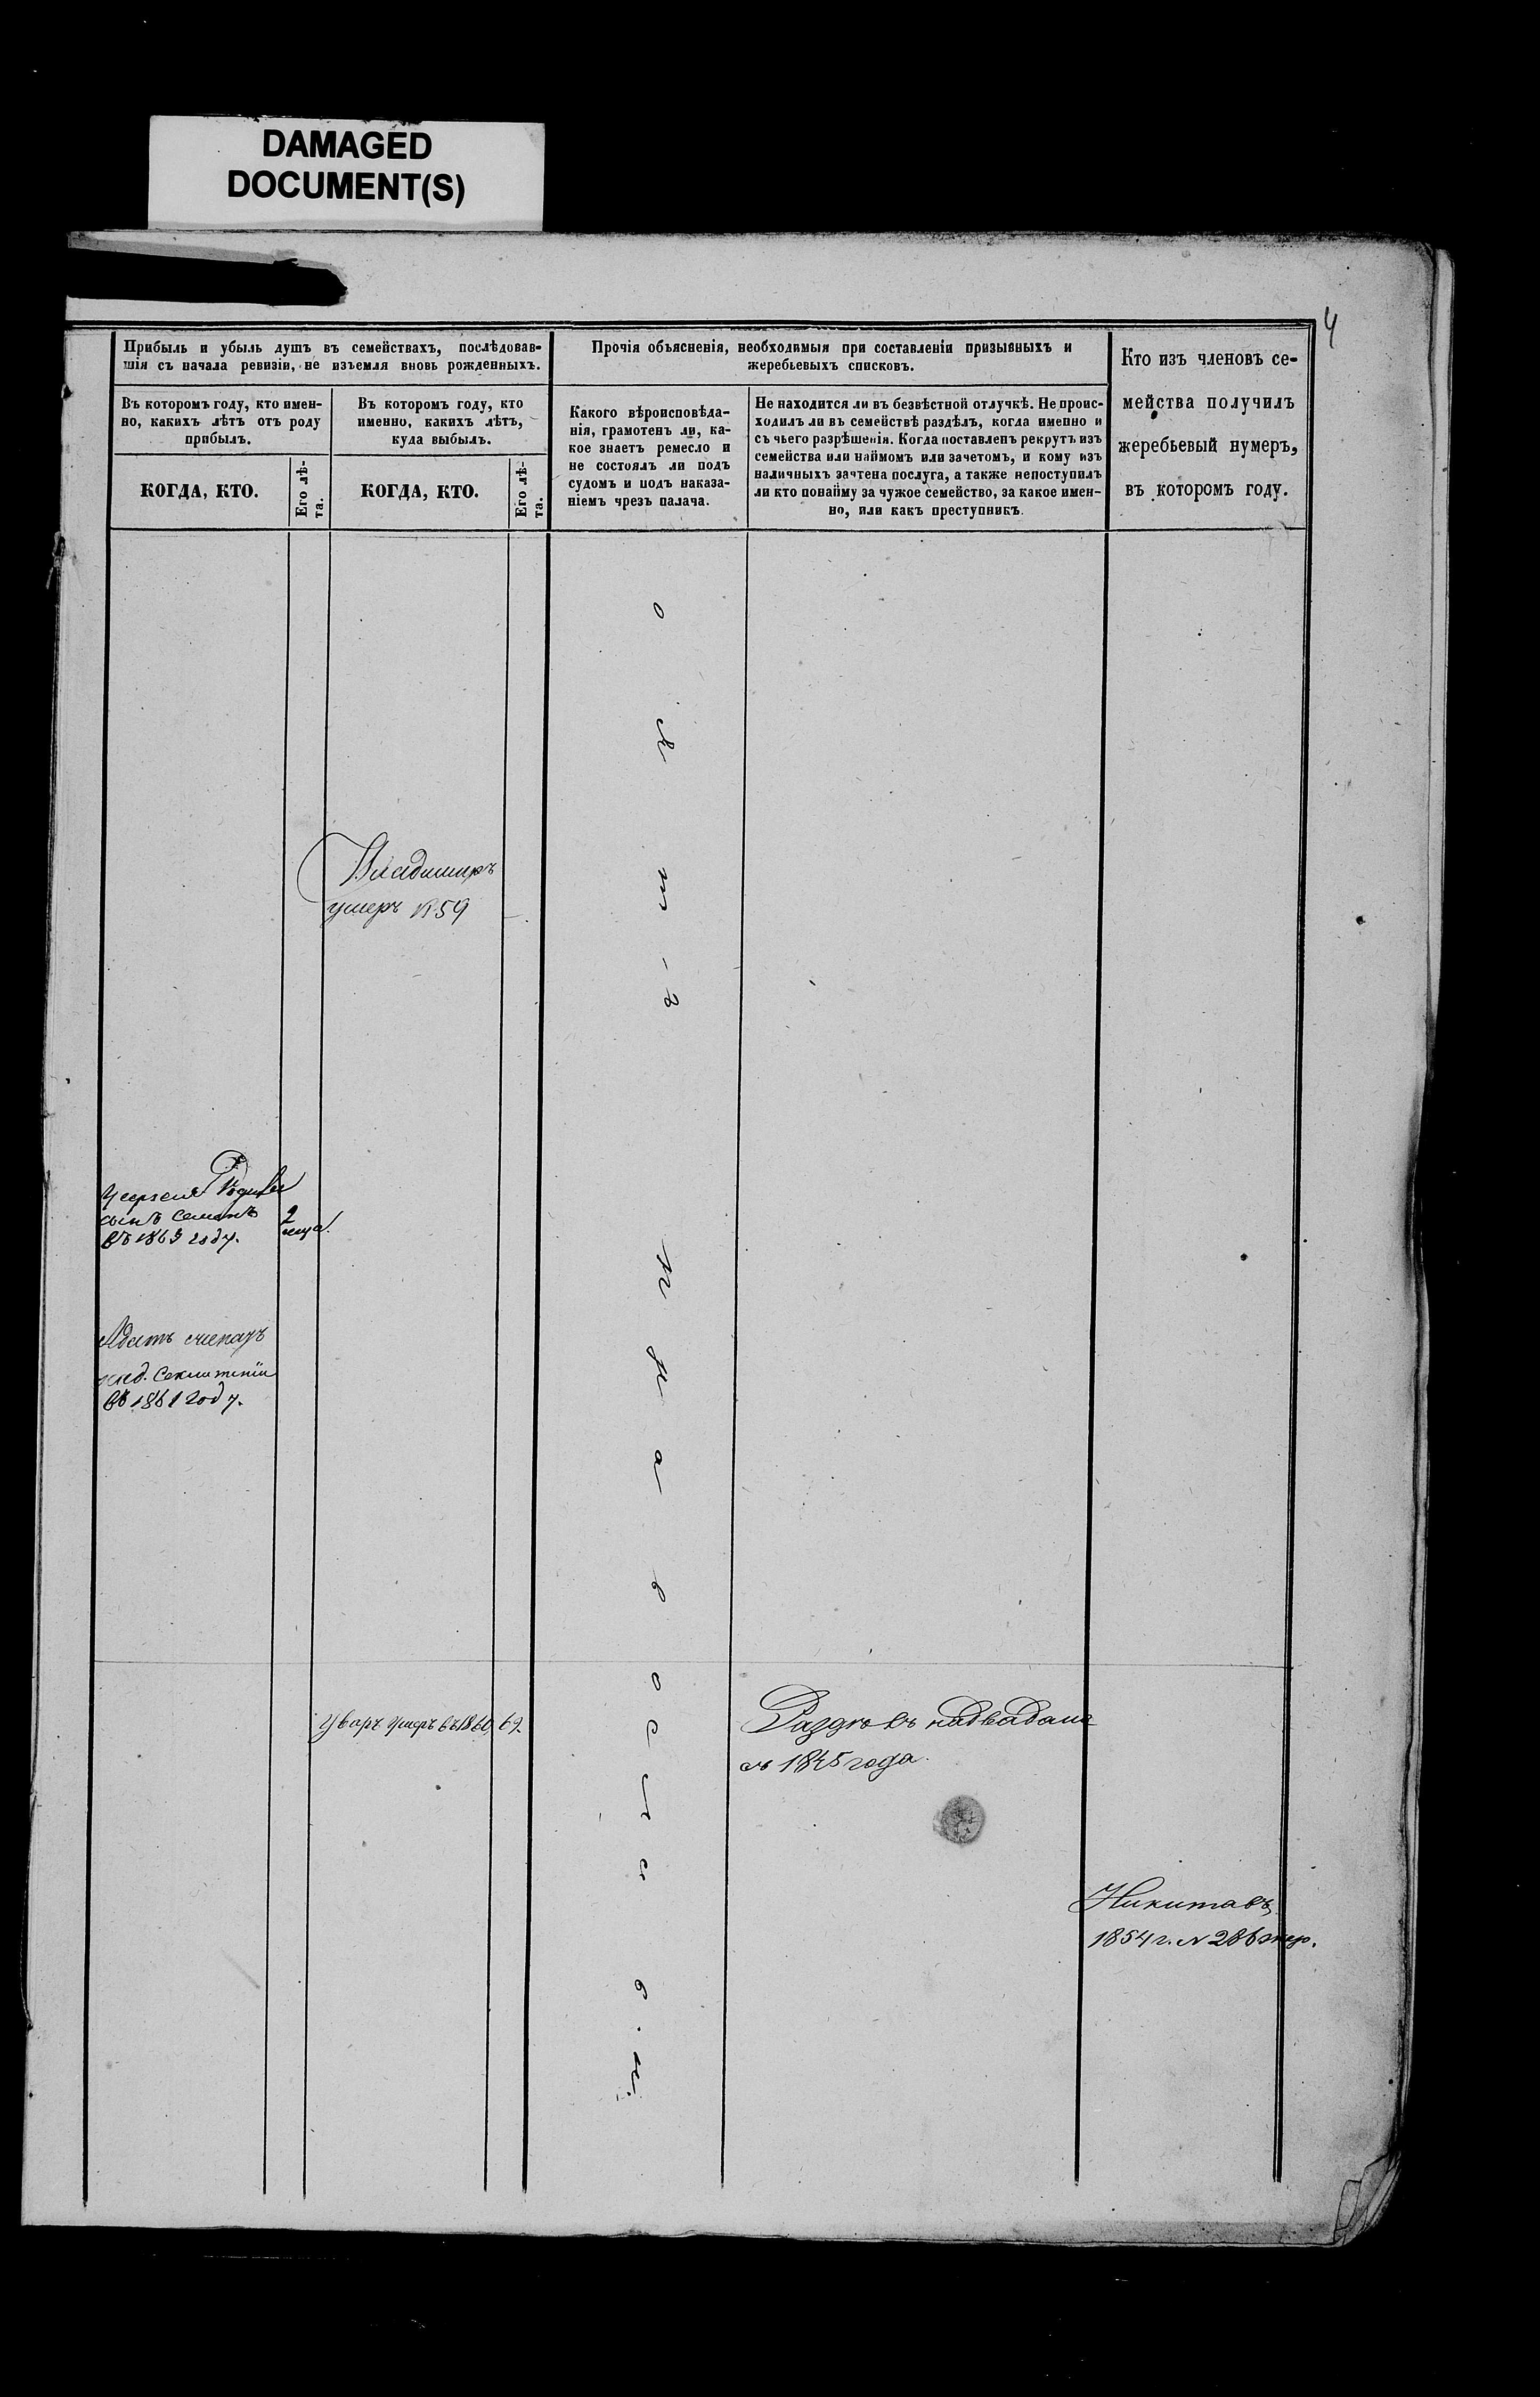 DAMAGED
DOCUMENT(S)
4
Прибыль и убыль душъ въ семействахъ, послѣдовав-
шія съ начала ревизіи, не изъемля вновь рожденныхъ.
Въ которомъ году, кто имен-
но, какихъ лѣтъ отъ роду
прибылъ.
КОГДА, КТО.
Его лѣ-
та.
Въ которомъ году, кто
именно, какихъ лѣтъ,
куда выбылъ.
КОГДА, КТО.
Его лѣ-
та.
Прочія объясненія, необходимыя при составленіи призывныхъ и
жеребьевыхъ списковъ.
Какого вѣроисповѣда-
нія, грамотенъ ли, ка-
кое знаетъ ремесло и
не состоялъ ли подъ
судомъ и подъ наказа-
ніемъ чрезъ палача.
Не находится ли въ безвѣстной отлучкѣ. Не проис-
ходилъ ли въ семействѣ раздѣлъ, когда именно и
съ чьего разрѣшенія. Когда поставленъ рекрутъ изъ
семейства или наймомъ или зачетомъ, и кому изъ
наличныхъ зачтена послуга, а также непоступилъ
ли кто понайму за чужое семейство, за какое имен-
но, или какъ преступникъ.
Кто изъ членовъ се-
мейства получилъ
жеребьевый нумеръ,
въ которомъ году.
Владимиръ
умеръ 59
сынъ Семенъ
въ 1863 году.
2
Адамъ
въ 1861 году.
Уваръ умеръ въ 1860, 69.
съ 1845 года.
Никита въ
1854 г. № 286 жер.